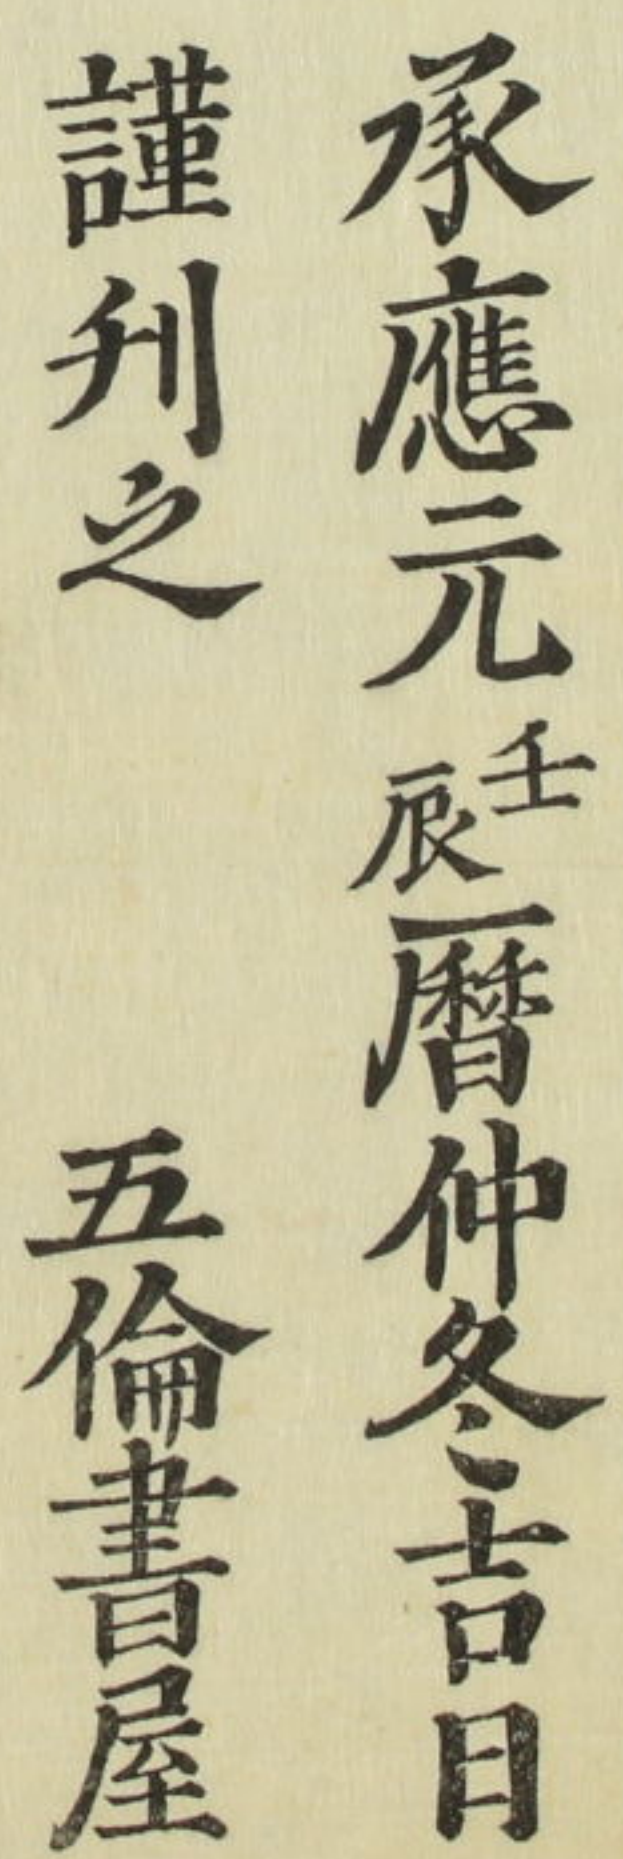 承應元壬辰暦仲冬吉日
謹刊之 五倫書屋